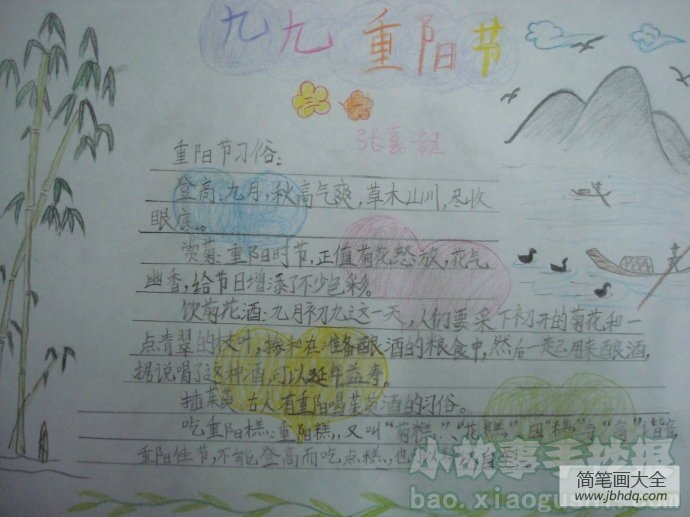 九九重阳节
三
张嘉
重阳节习俗:
登高:九月,秋高气爽,草木山川,尽收
眼底。
赏菊:重阳时节,正值菊花怒放,花气
幽香,给节日增添了不少色彩。
饮菊花酒:九月初九这一天,人们要采下初开的菊花和一
点青翠的枝叶,掺和在准备酿酒的粮食中,然后一起用来酿酒,
据说喝了这种酒,可以延年益寿。
插茱萸:古人有重阳喝茱萸酒的习俗。
吃重阳糕:重阳糕,又叫“菊糕”、“花糕”,因“糕”与“高”谐音,
重阳佳节,不能登高而吃点糕,也
小故事手抄报
bao.xiaogushi.com
简笔画大全
www.jbhdq.com